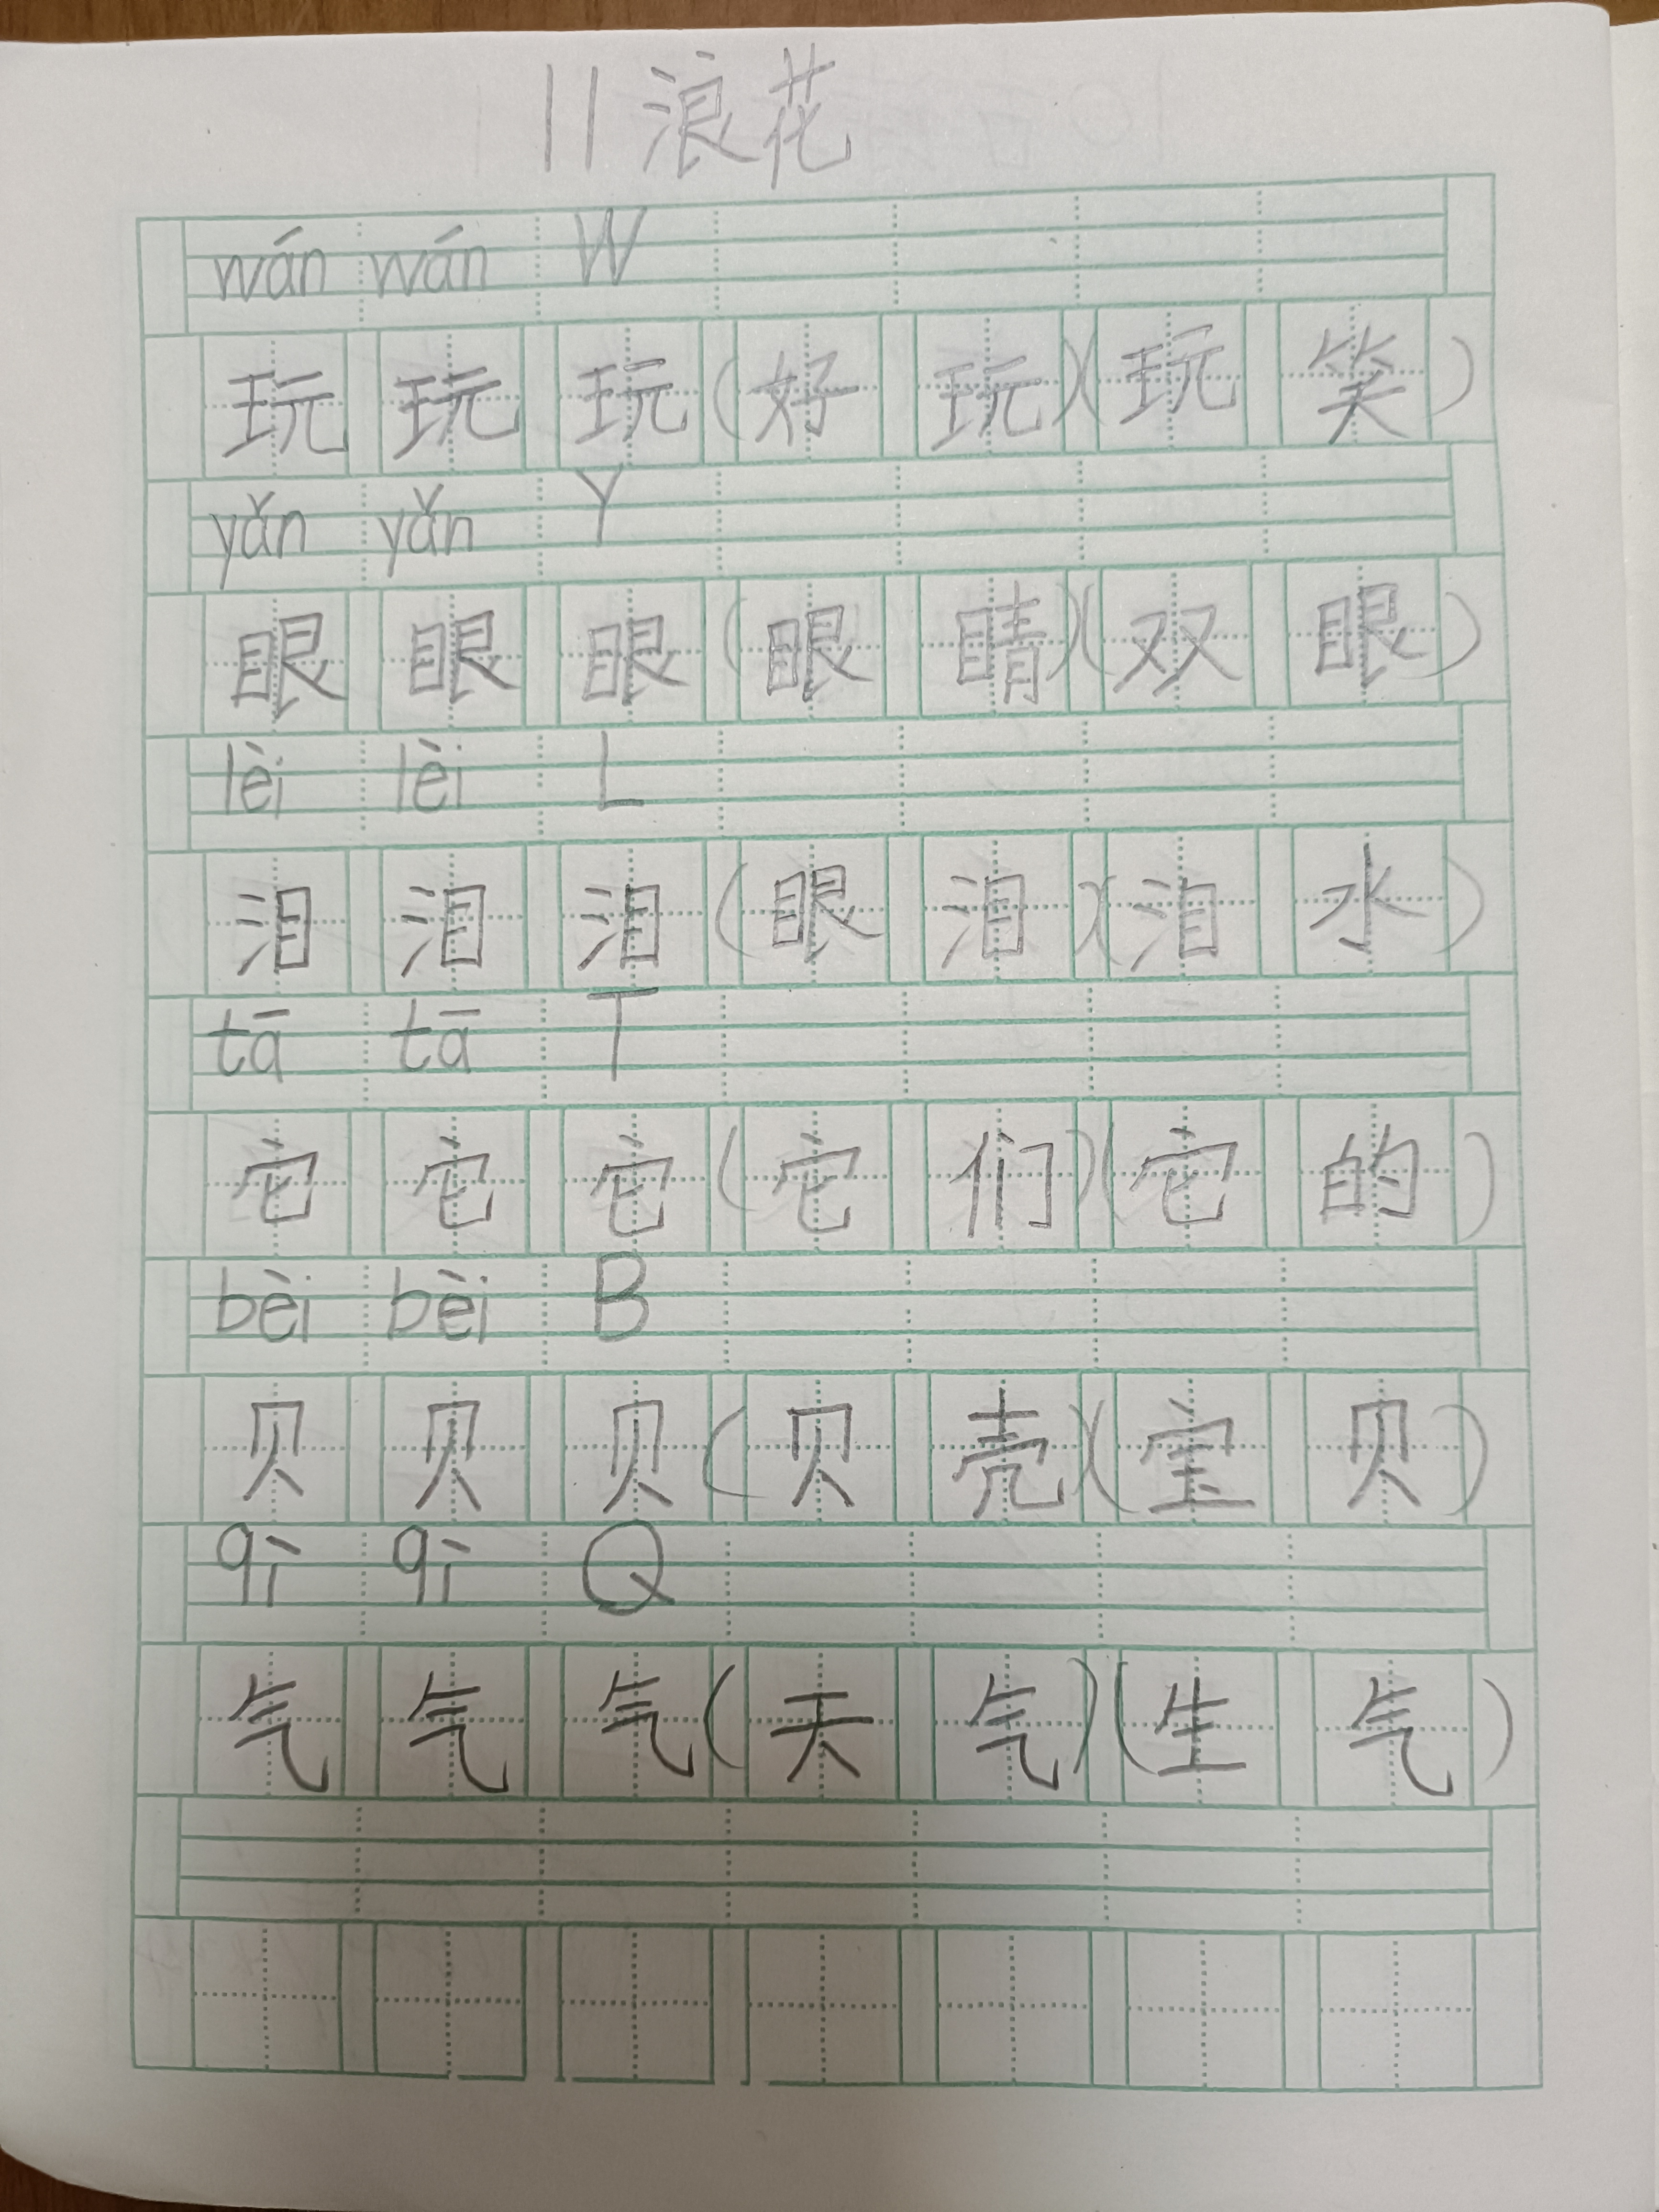 11 浪花
wán wán W
玩 玩 玩 (好 玩) (玩 笑)
yǎn yǎn Y
眼 眼 眼 (眼 睛) (双 眼)
lèi lèi L
泪 泪 泪 (眼 泪) (泪 水)
tā tā T
它 它 它 (它 们) (它 的)
bèi bèi B
贝 贝 贝 (贝 壳) (宝 贝)
qì qì Q
气 气 气 (天 气) (生 气)